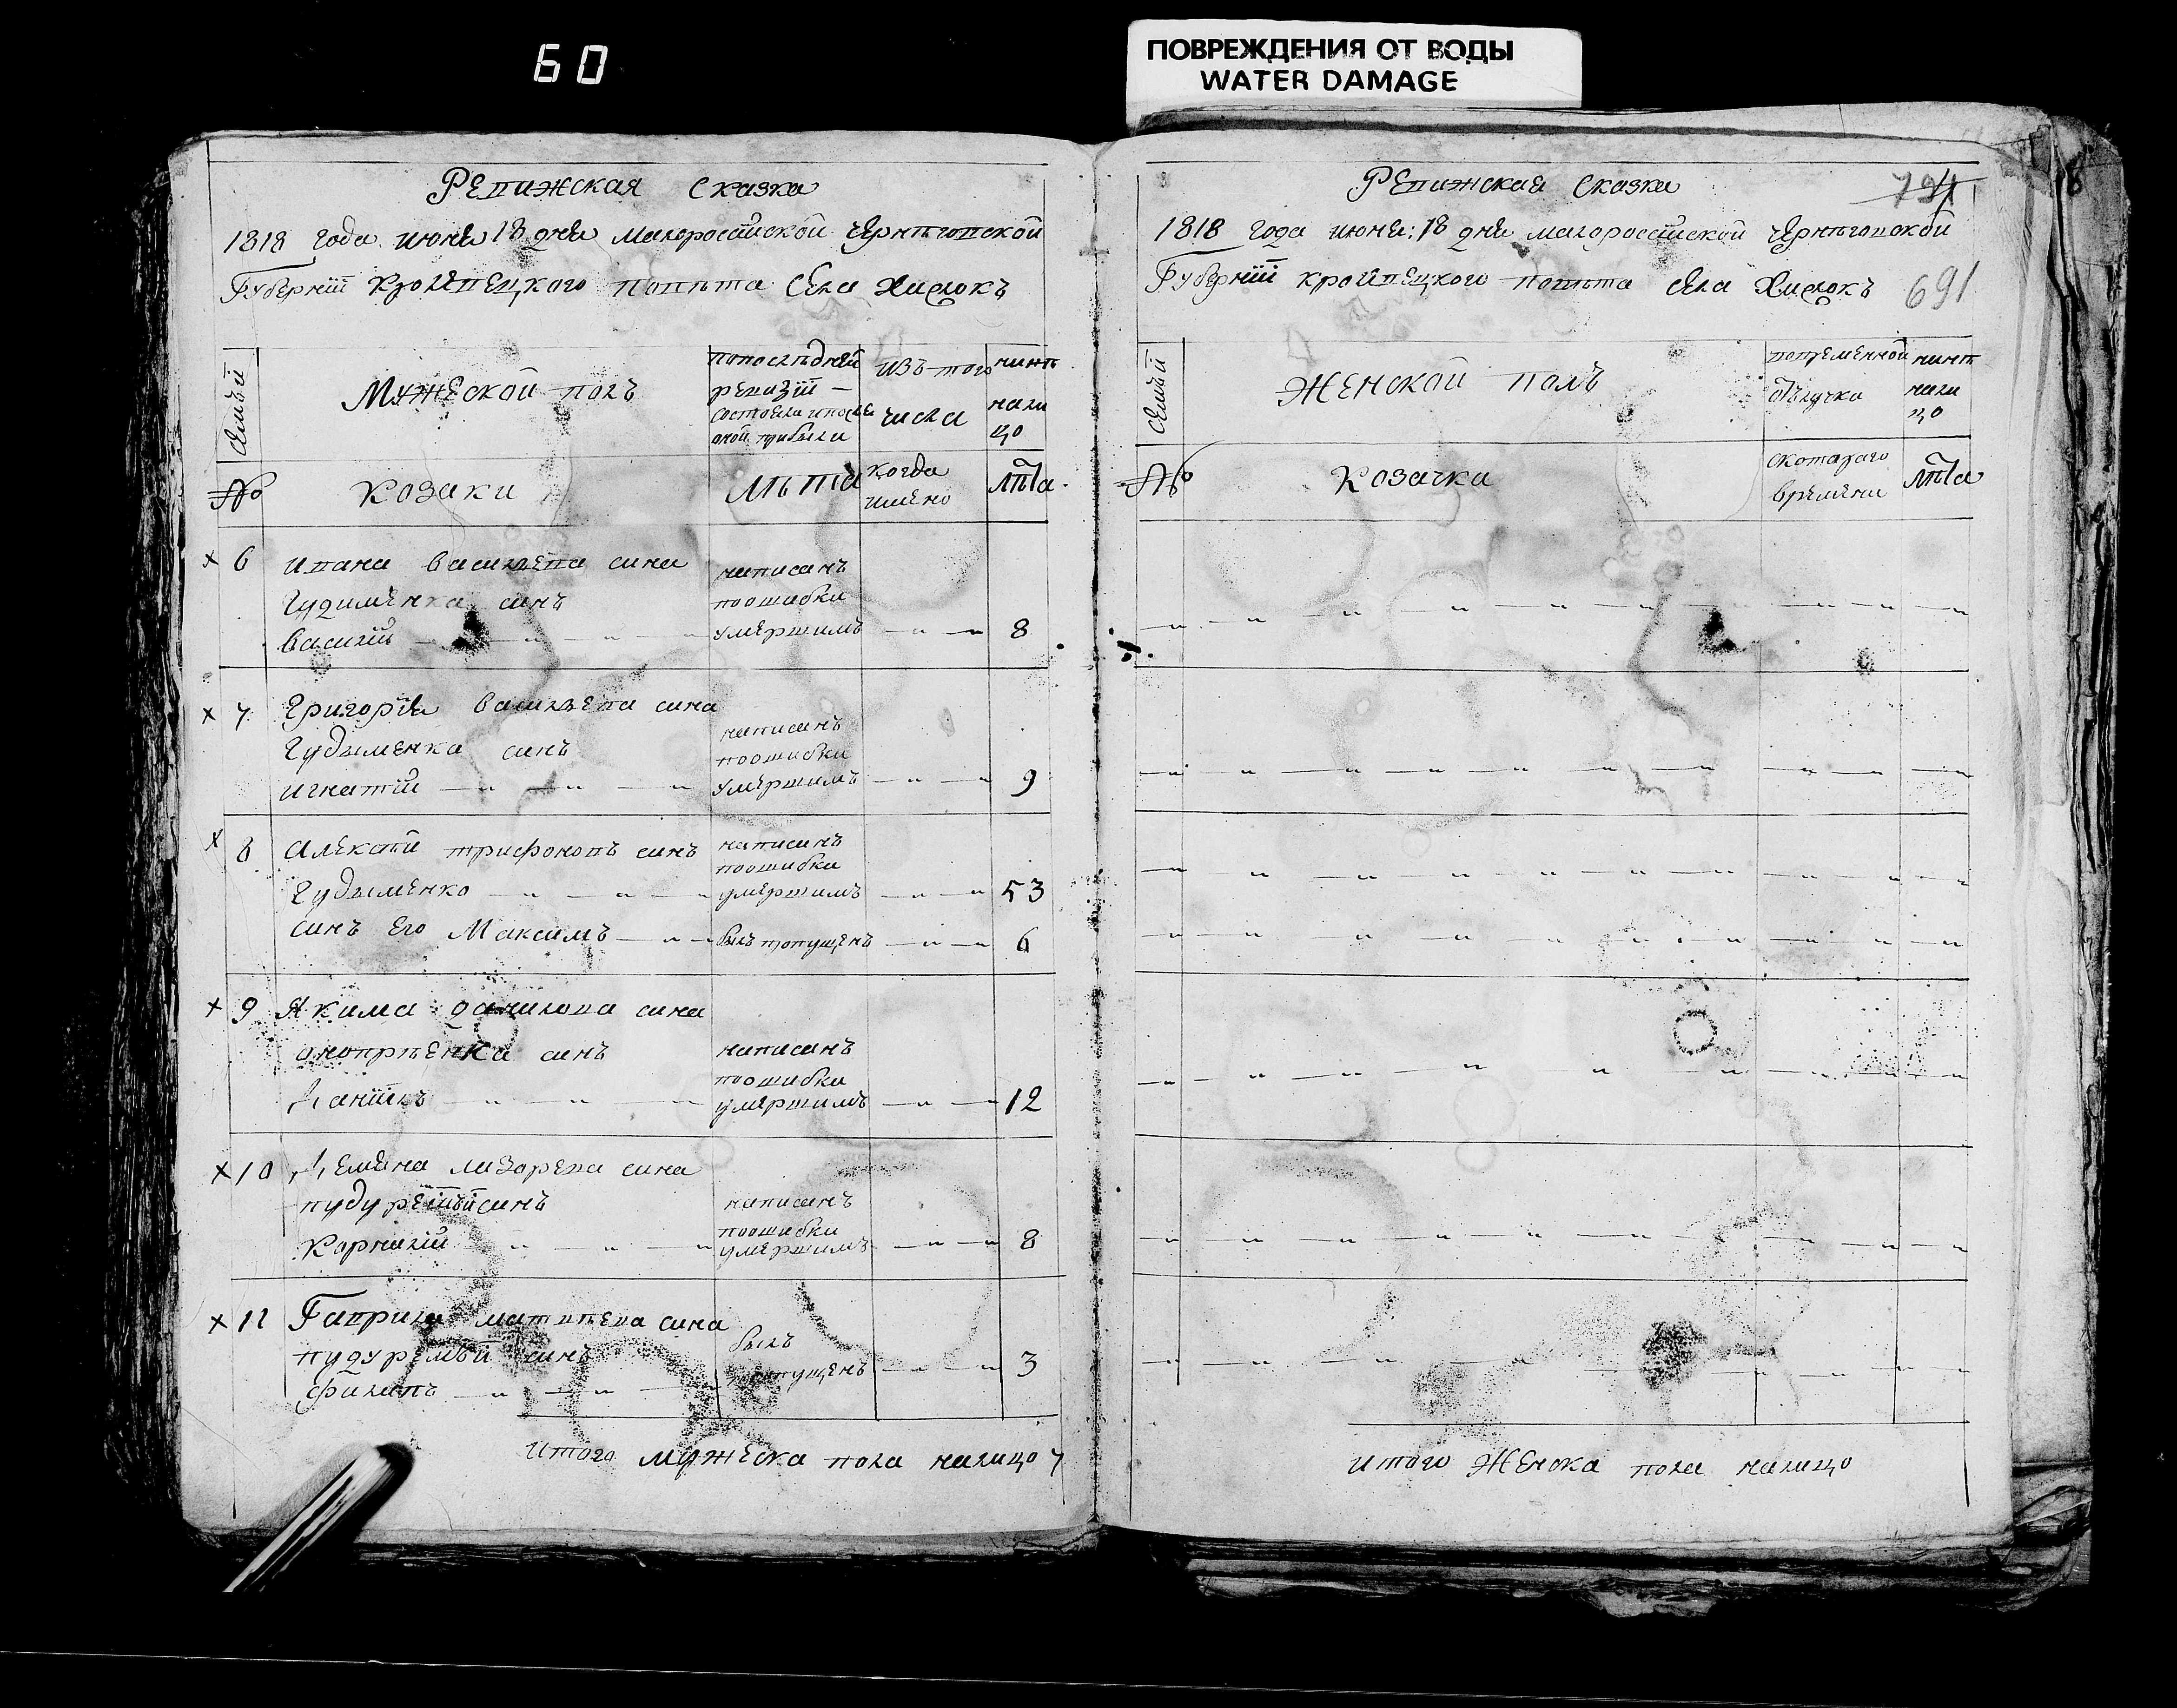 60
ПОВРЕЖДЕНИЯ ОТ ВОДЫ
WATER DAMAGE
Ревижская Сказка
1818 года июня 18 дня малоросийской черниговской
Губернїи Кролевецкого повѣта Села Хижокъ
Семьй
Мужеской полъ
попоследней
ревизїи
состояли и после
оной прибыли
изъ того
числа
нинѣ
нали
цо
№
Козаки
Лѣта
когда
имено
Лѣта
× 6 ивана василъева сина
Гудименка синъ
василїй
написанъ
поошибки
умершимъ
8
× 7 Григорїя василъева сина
Гудыменка синъ
игнатїй
написанъ
поошибки
умершимъ
9
× 8 Алексѣй трифоновъ синъ
Гудыменко
написанъ
поошибки
умершимъ
53
синъ Его Максимъ
былъ пропущенъ
6
× 9 Якима данилова сина
оноприенка синъ
Данїилъ
написанъ
поошибки
умершимъ
12
× 10 Демяна лазарева сина
синъ
Корнилїй
написанъ
поошибки
умершимъ
8
× 11 Гаврила матвѣева сина
синъ
филипъ
былъ
пропущенъ
3
Итого мужеска пола налицо 7
Ревижская Сказка
791
1818 года июня: 18 дня малоросийской черниговской
Губернїи кролевецкого повѣта села Хижокъ
691
Семьй
Женской полъ
вовременной
отълучки
нинѣ
нали
цо
№
Козачки
скотораго
времяни
лѣта
итого Женска пола налицо